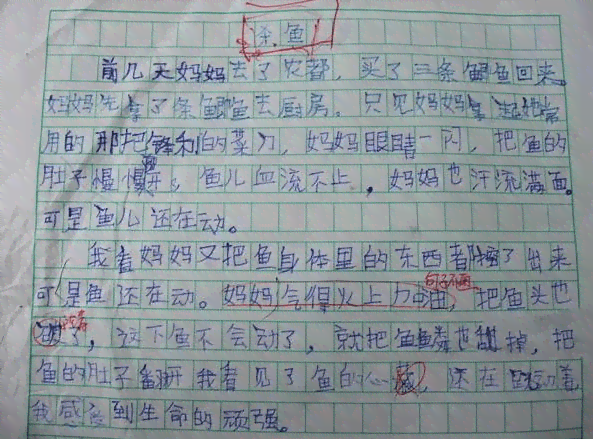 杀鱼
前几天妈妈去了农都，买了三条鲫鱼回来。
妈妈先拿了条鲫鱼去厨房。只见妈妈拿起她常
用的那把锋利的菜刀，妈妈眼睛一闪，把鱼的
肚子慢慢。鱼儿血流不止，妈妈也汗流满面。
可是鱼儿还在动。
我看妈妈又把鱼身体里的东西都了出来
可是鱼还在动。妈妈气得火上加油，把鱼头也
了，这下鱼不会动了，就把鱼鳞也刮掉，把
鱼的肚子翻开我看见了鱼的心，还在跳动着
我感到生命的顽强。